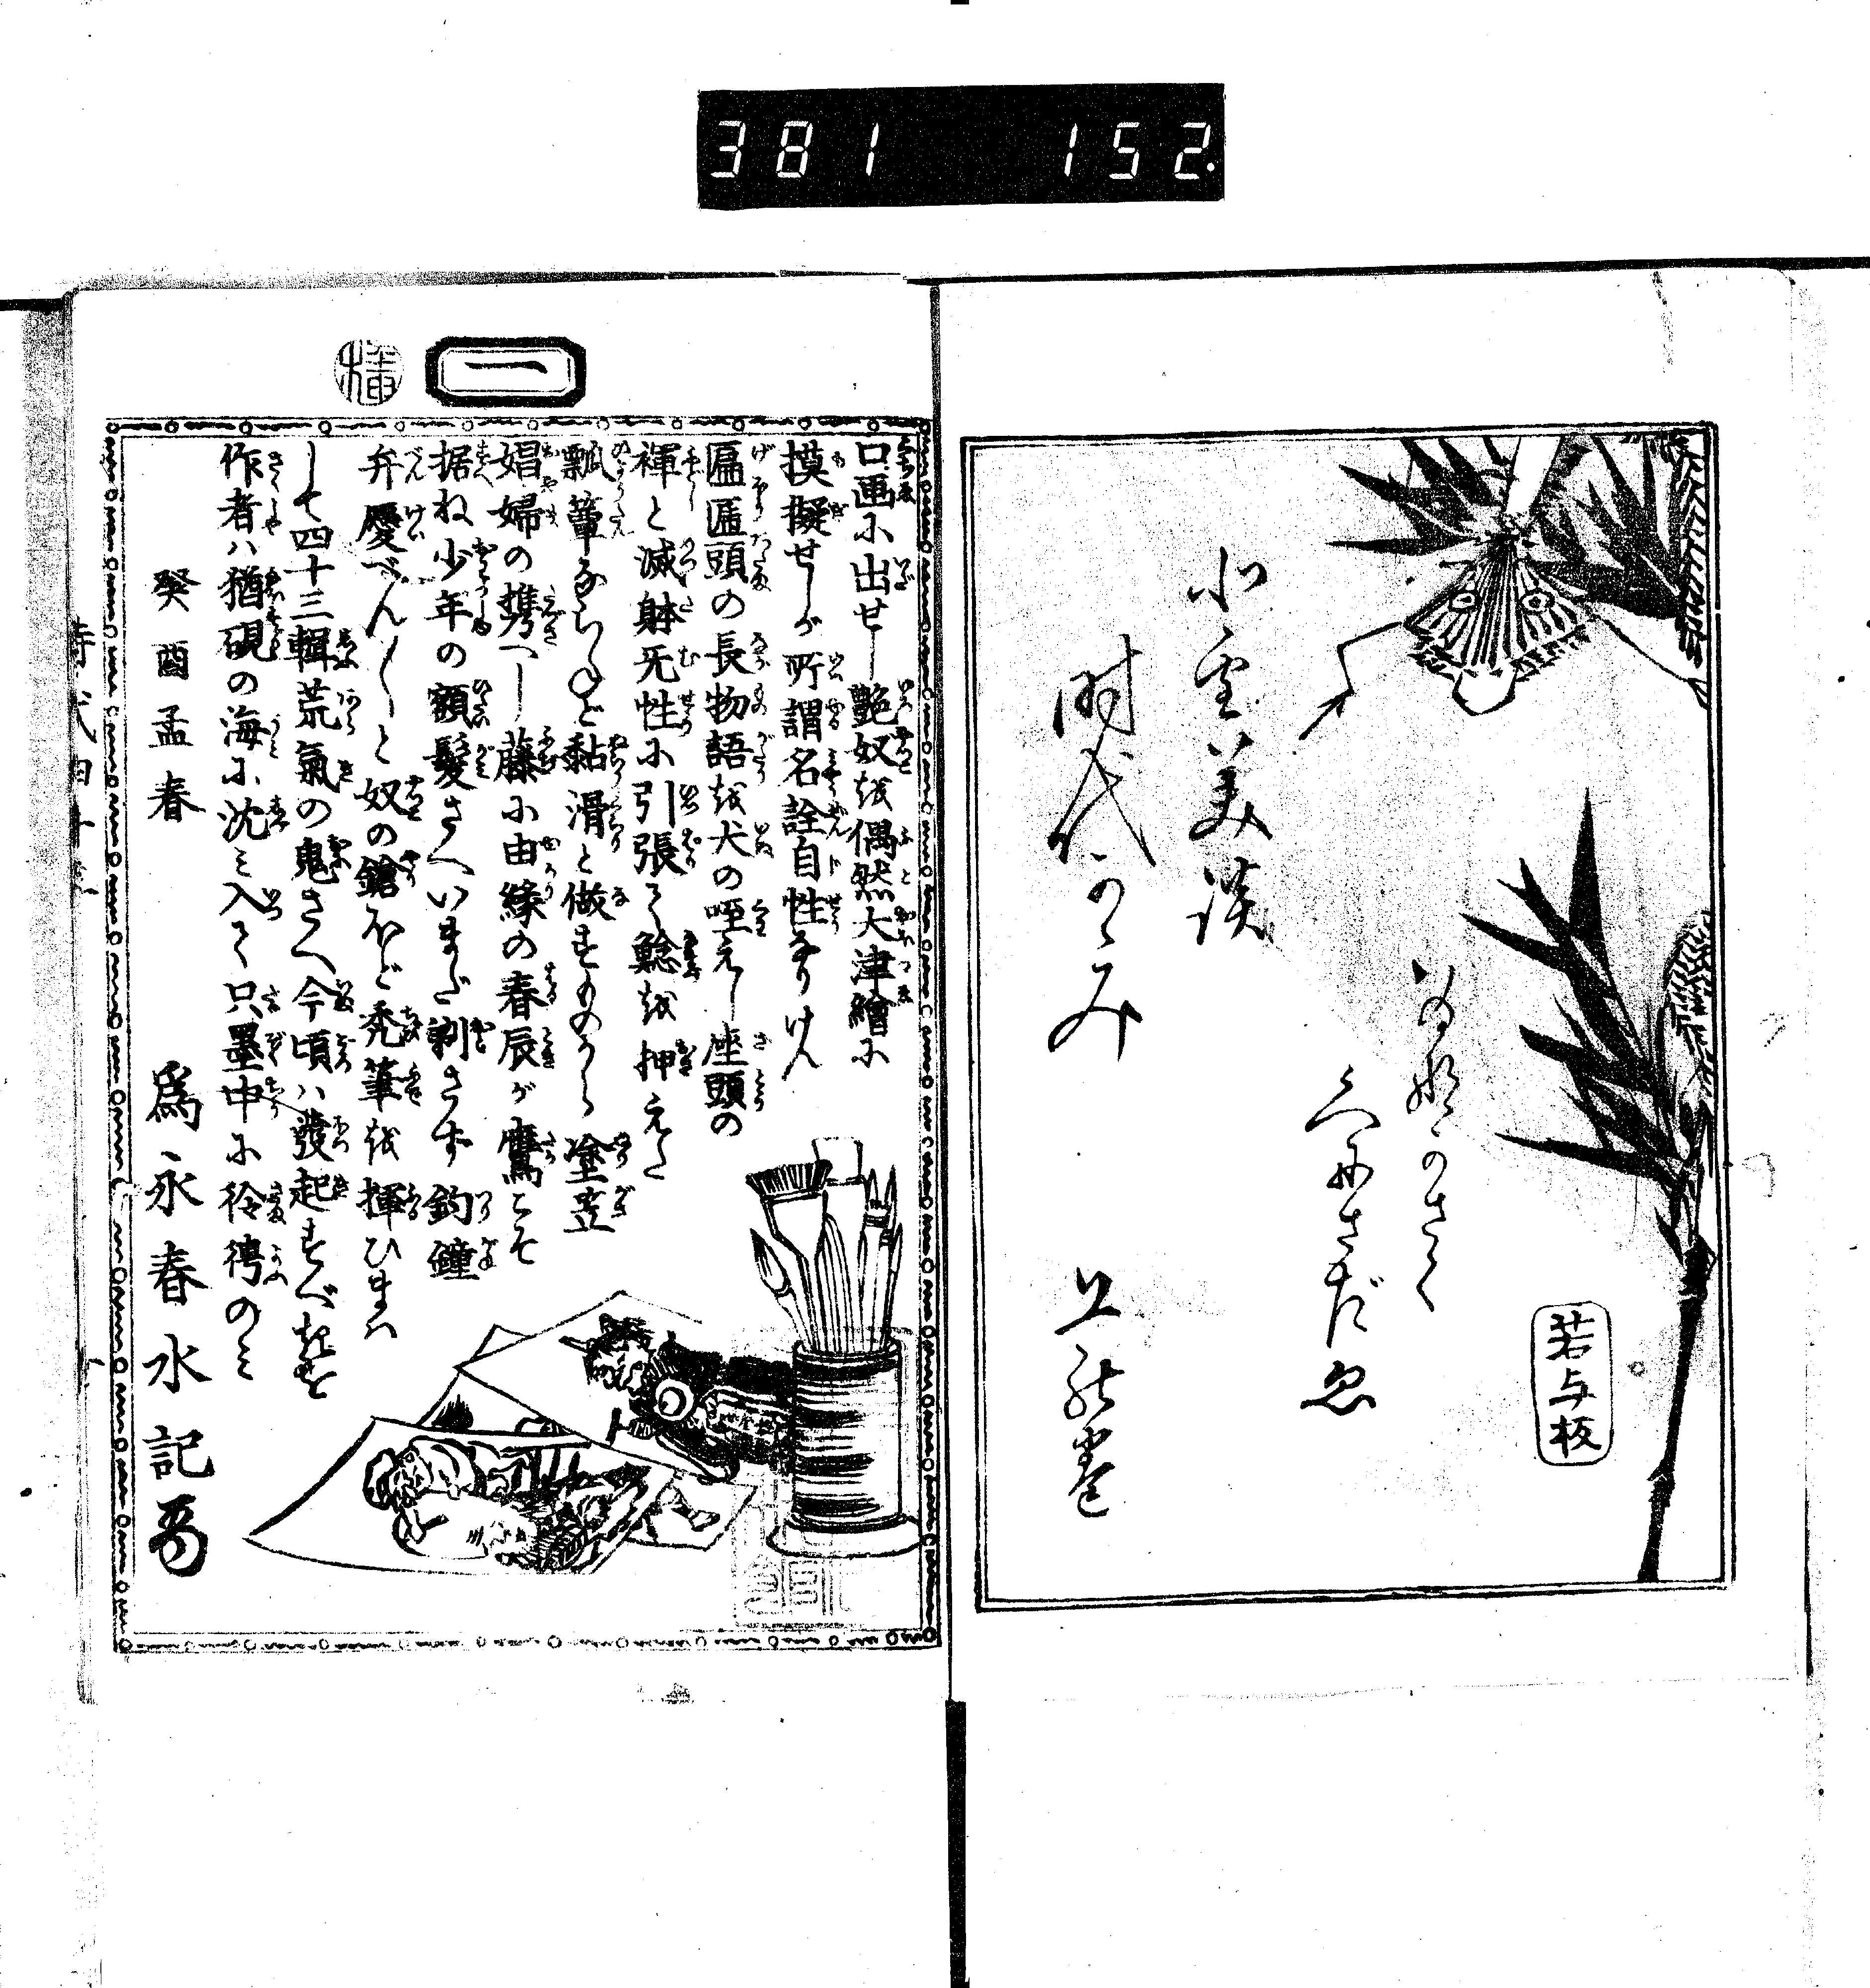 381 152.
小雪美談
時代かゞみ
上の巻
ためなかさく
くにさだゑ
若与板
一
口画に出せし艶奴を偶然大津繪に
摸擬せしが所謂名詮自性なりけん
匾匾頭の長物語を犬の咥えし座頭の
褌と滅躰无性に引張て鯰を押えた
瓢簞ならねど黏滑と做すものから塗笠
娼婦の携へし藤に由縁の春辰が鷹こそ
据ね少年の額髮さへいまだ剃さず釣鐘
弁慶べん〳〵と奴の鎗ほど禿筆を揮ひまは
して四十三輯荒氣の鬼さへ今頃ハ發起すべきを
作者ハ猶硯の海に沈み入て只墨中に彾俜のみ
癸酉孟春
爲永春水記